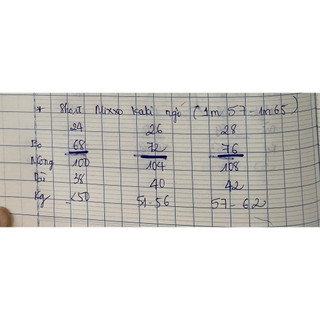 + Short Mixxo Kaki ngố (1m57 - 1m65)
24 26 28
Eo 68 72 76
Mông 100 104 108
Dài 38 40 42
Kg <50 51-56 57-62